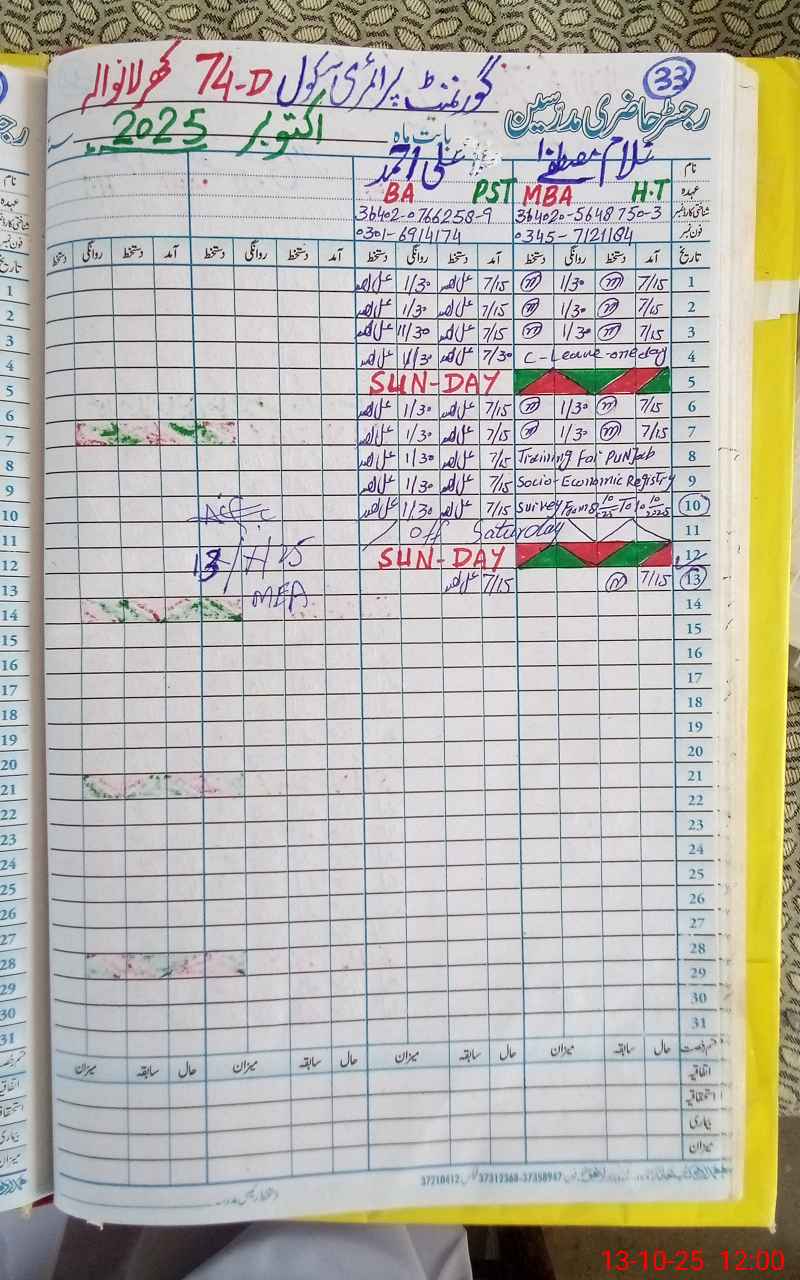 33
گورنمنٹ پرائمری سکول 74-D کھرلانوالہ
رجسٹر حاضری مدرسین
بابت ماہ اکتوبر 2025
نام غلام مصطفےٰ علی احمد
عہدہ H.T MBA PST BA
36402-0766258-9
فون نمبر 0345-7121184 0301-6914174
تاریخ آمد دستخط روانگی دستخط آمد دستخط روانگی دستخط آمد دستخط روانگی دستخط آمد دستخط روانگی دستخط
1 7/15 1/30 7/15 علی احمد 1/30 علی احمد
2 7/15 1/30 7/15 علی احمد 1/30 علی احمد
3 7/15 1/30 7/15 علی احمد 11/30 علی احمد
4 C-Leave-one day 7/30 علی احمد 11/30 علی احمد
5 SUN-DAY
6 7/15 1/30 7/15 علی احمد 1/30 علی احمد
7 7/15 1/30 7/15 علی احمد 1/30 علی احمد
8 Training For PUNJab 7/15 علی احمد 1/30 علی احمد
9 Socio-Economic Registry 7/15 علی احمد 1/30 علی احمد
10 Survey From 8/10/25 To 10/10/2025 7/15 علی احمد 1/30 علی احمد
11 off Saturday
12 SUN-DAY
13 7/15 7/15 علی احمد
MEA
14
15
16
17
18
19
20
21
22
23
24
25
26
27
28
29
30
31
قسم رخصت حال سابقہ میزان حال سابقہ میزان حال سابقہ میزان حال سابقہ میزان
اتفاقیہ
استحقاقیہ
بیماری
میزان
37210412 37312368-37358947
دستخط رئیس مدرسہ
13-10-25 12:00